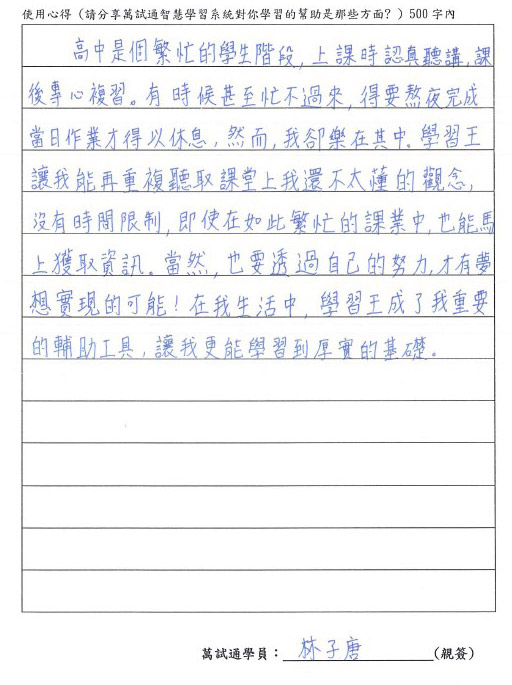 使用心得（請分享萬試通智慧學習系統對你學習的幫助是那些方面？）500 字內
高中是個繁忙的學生階段，上課時認真聽講，課
後專心複習。有時候甚至忙不過來，得要熬夜完成
當日作業才得以休息，然而，我卻樂在其中。學習王
讓我能再重複聽取課堂上我還不太懂的觀念，
沒有時間限制，即使在如此繁忙的課業中，也能馬
上獲取資訊。當然，也要透過自己的努力，才有夢
想實現的可能！在我生活中，學習王成了我重要
的輔助工具，讓我更能學習到厚實的基礎。
萬試通學員：林子唐（親簽）